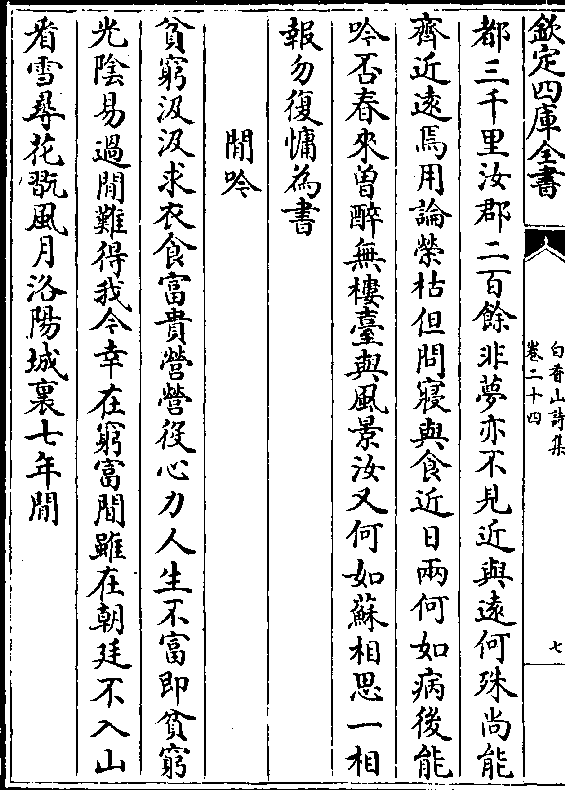 欽定四庫全書
白香山詩集
卷二十四
七
都三千里汝郡二百餘非夢亦不見近與遠何殊尚能
齊近遠焉用論榮枯但問寢與食近日兩何如病後能
吟否春來曾醉無樓臺與風景汝又何如蘇相思一相
報勿復慵為書
閒吟
貧窮汲汲求衣食富貴營營役心力人生不富即貧窮
光陰易過閒難得我今幸在窮富間雖在朝廷不入山
看雪尋花翫風月洛陽城裏七年閒